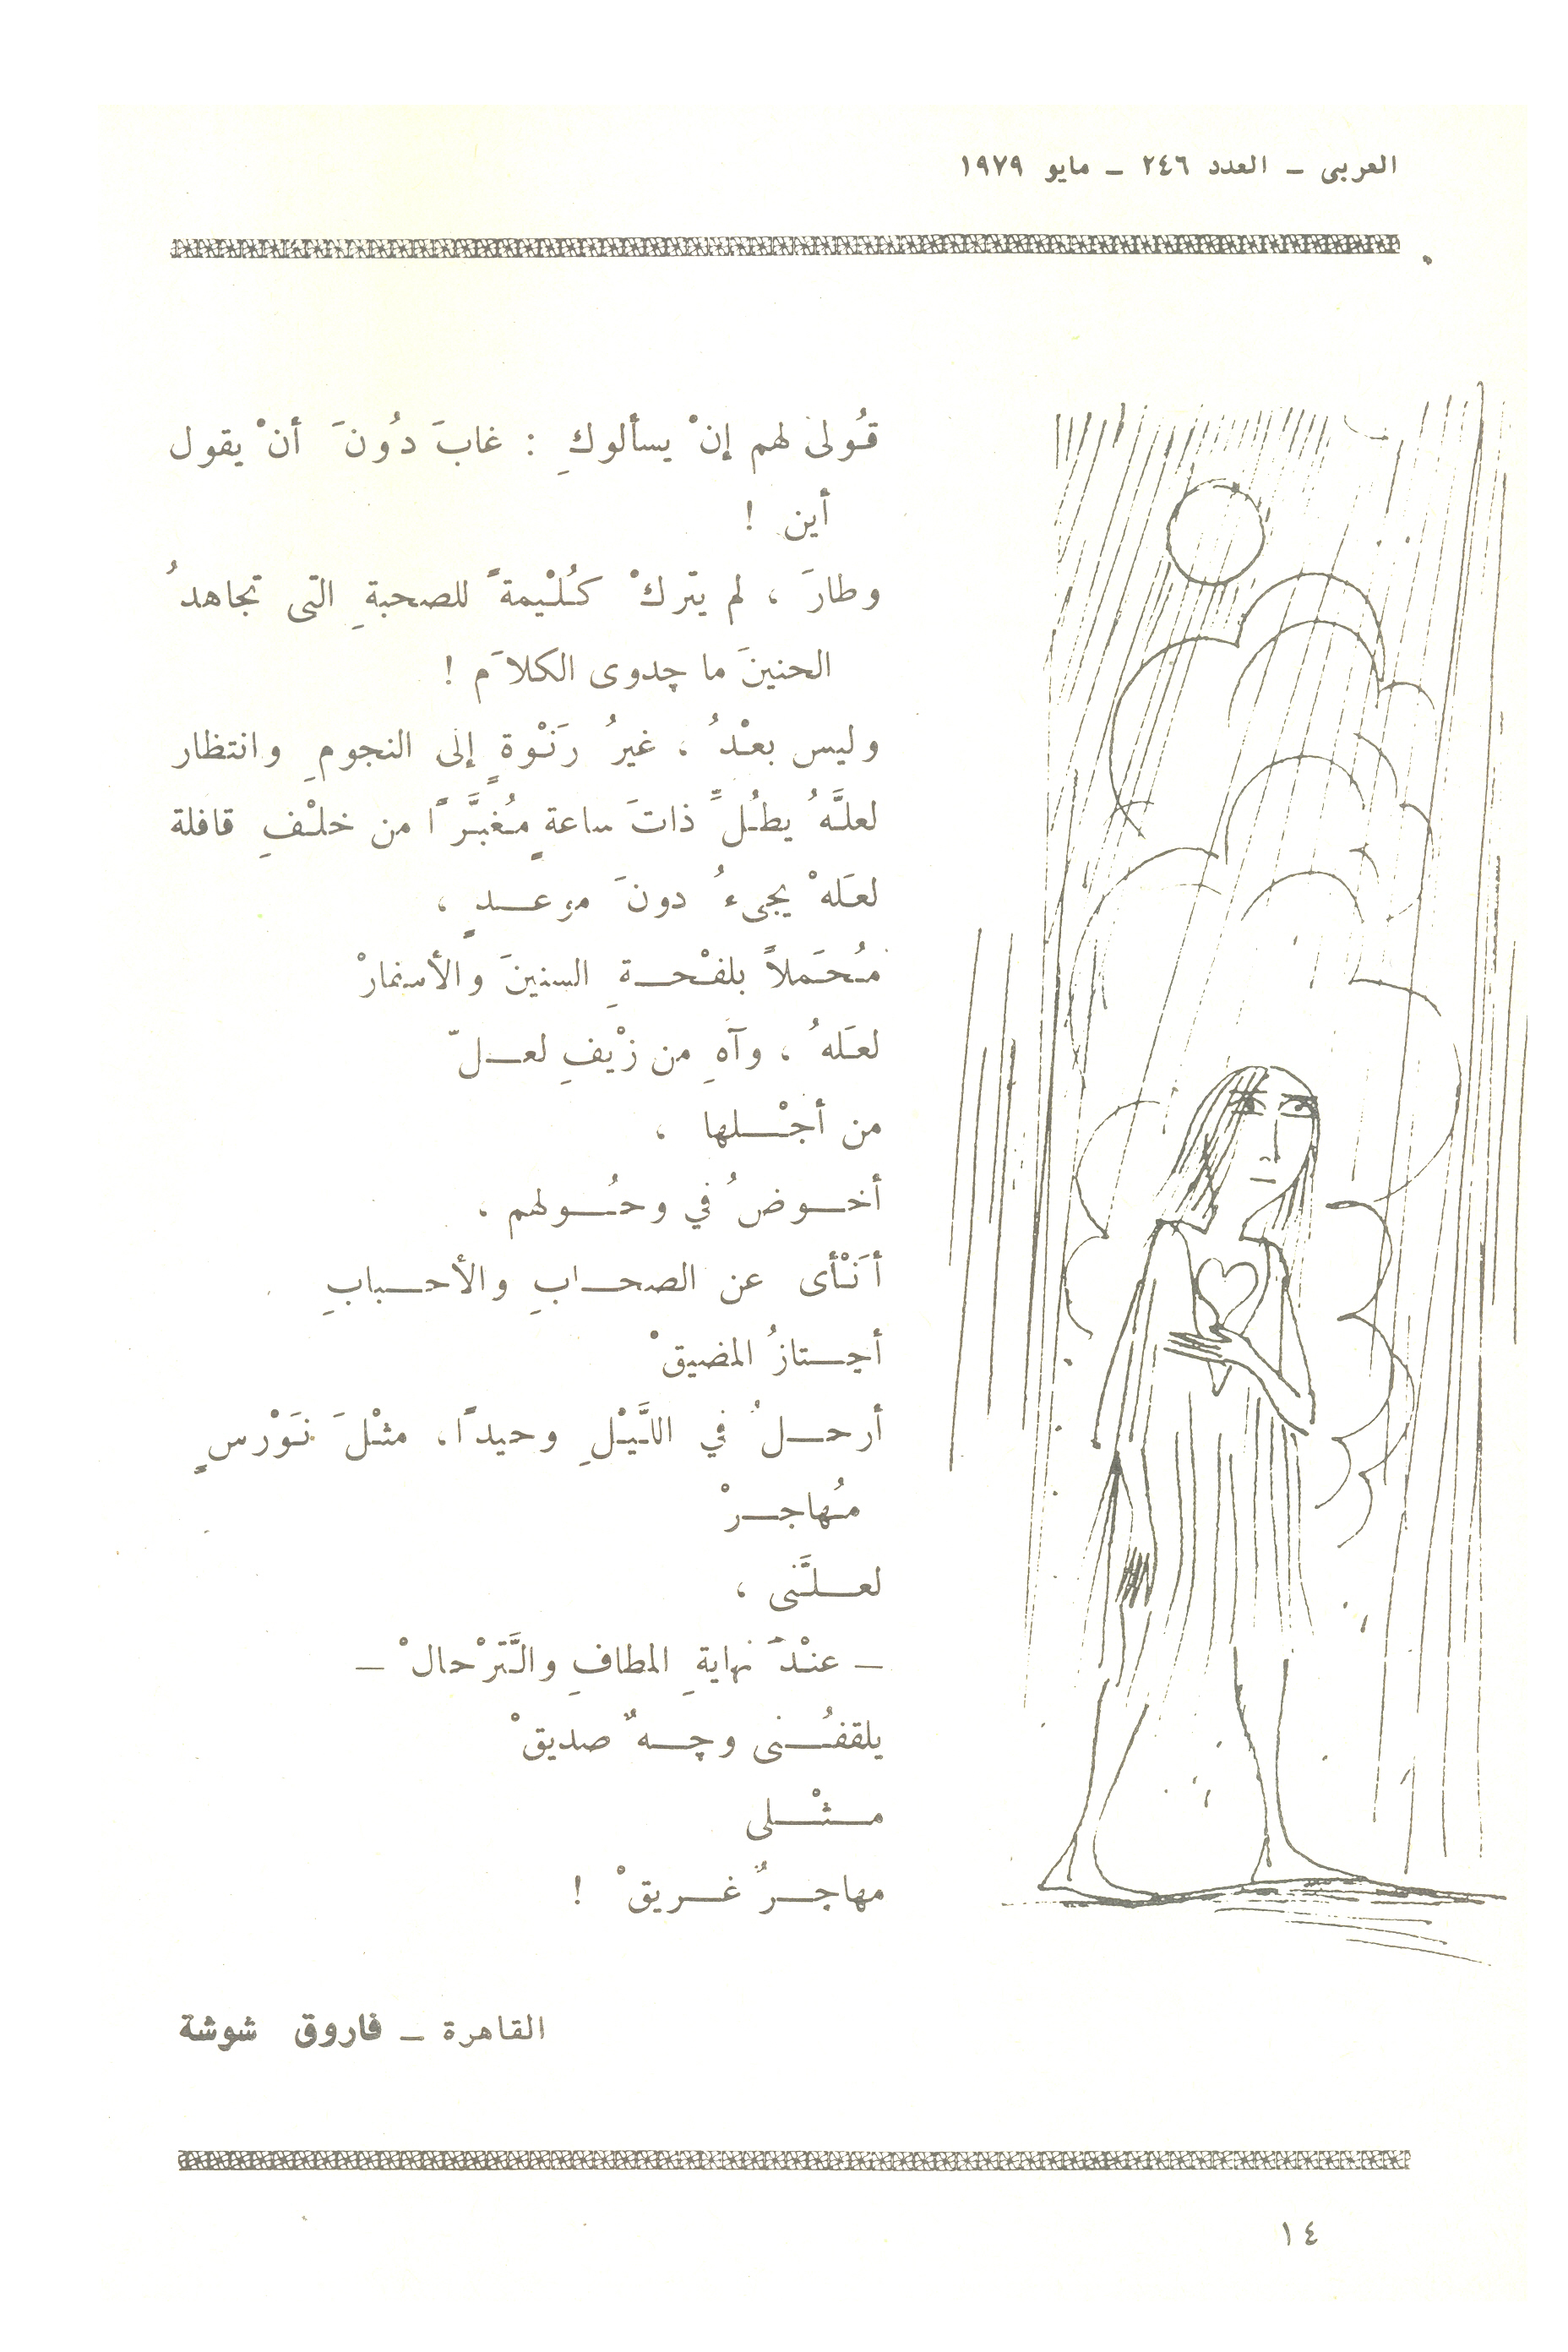 العربى – العدد ٢٤٦ – مايو ١٩٧٩
قُولى لهم إنْ يسألوكِ : غابَ دُونَ أنْ يقول
أين !
وطارَ ، لم يتركْ كُلْيمةً للصحبةِ التى تجاهدُ
الحنينَ ما جدوى الكلاَم !
وليس بعْدُ ، غيرُ رَنْوةٍ إلى النجومِ وانتظار
لعلَّهُ يطُلُّ ذاتَ ساعةٍ مُغبَّرًا من خلْفِ قافلة
لعَلهْ يجىءُ دونَ موعــدٍ ،
مُحَملاً بلفْحــةِ السنينَ والأسفارْ
لعَلهُ ، وآهِ من زيْفِ لعــلّ
من أجْــلها ،
أخــوضُ في وحُــولهم ،
أنْأى عن الصحــابِ والأحــبابِ
أجــتازُ المضيقْ
أرحــلُ في اللَّيْلِ وحيدًا، مثْلَ نَوْرسٍ
مُهاجــرْ
لعــلَّنى ،
– عنْدَ نهايةِ المطافِ والتَّرْحالْ –
يلقفُــنى وجــهٌ صديقْ
مــثْــلى
مهاجــرٌ غــريقْ !
القاهرة – فاروق شوشة
١٤